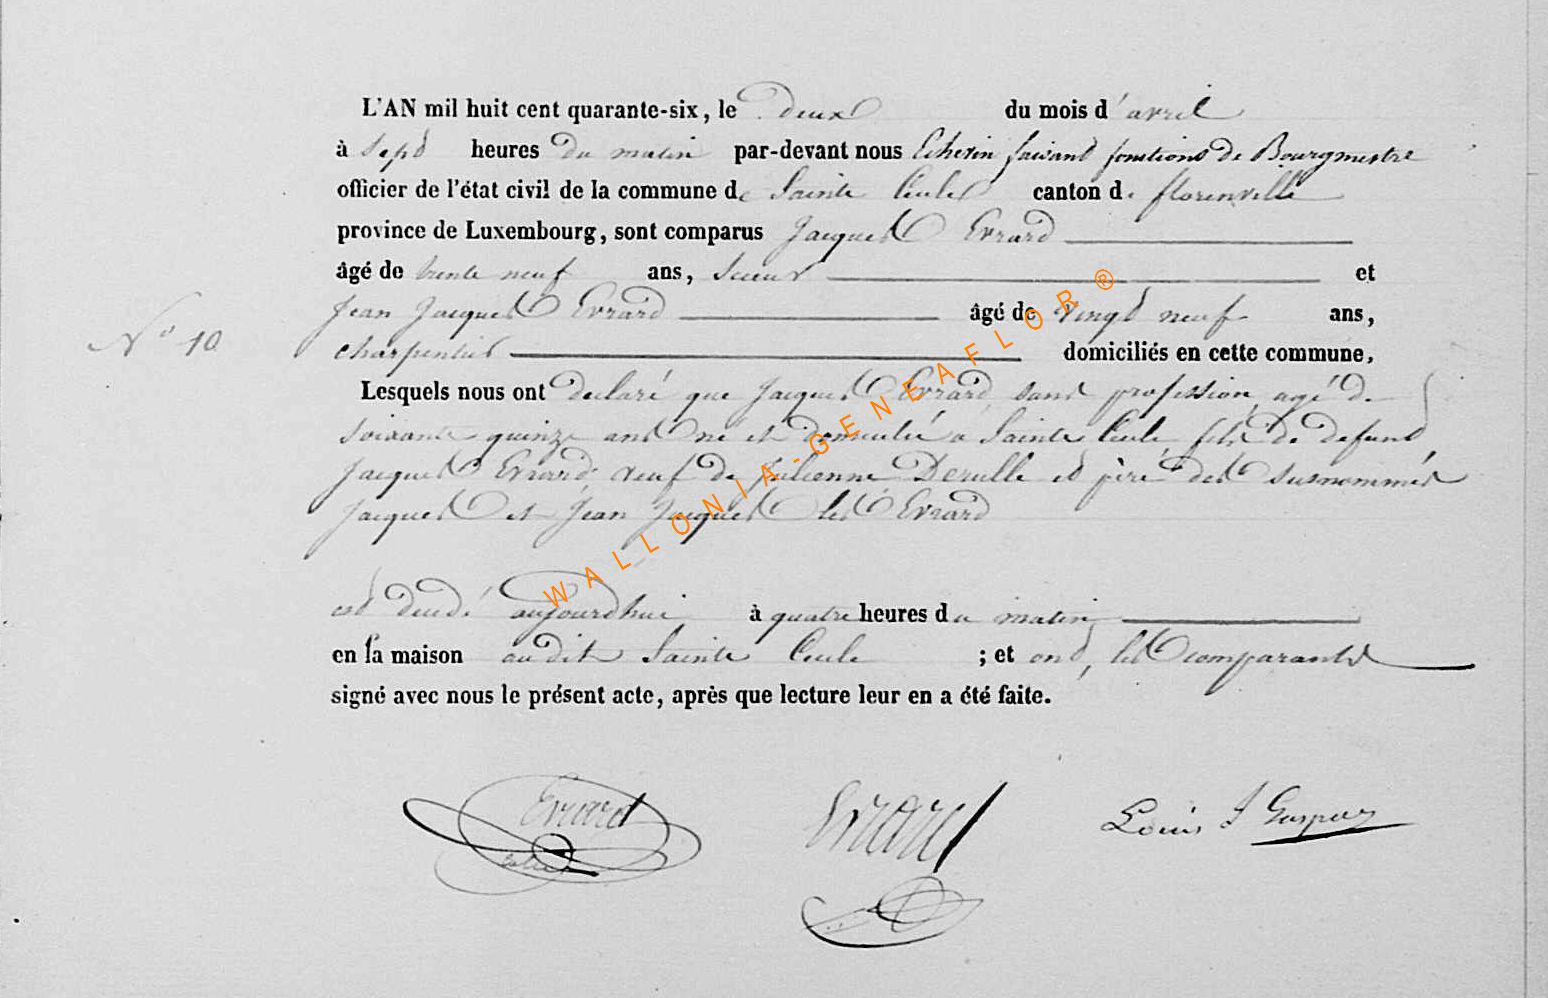 L'AN mil huit cent quarante-six, le deux du mois d'avril
à sept heures du matin par-devant nous Echevin faisant fonctions de Bourgmestre
officier de l'état civil de la commune de Sainte Cecile canton de florenville
province de Luxembourg, sont comparus Jacques Evrard
âgé de trente neuf ans, Scieur et
Jean Jacques Evrard âgé de vingt neuf ans,
N° 10
charpentier domiciliés en cette commune,
Lesquels nous ont declaré que Jacques Evrard sans profession agé de
soixante quinze ans né et domicilié a Sainte Cecile fils de defunt
Jacques Evrard veuf de Julienne Derulle et père des susnommés
Jacques et Jean Jacques les Evrard
est décédé aujourdhui à quatre heures du matin
en sa maison audit Sainte Cecile ; et ont, les comparants
signé avec nous le présent acte, après que lecture leur en a été faite.
Evrard Evrard Louis J Gaspar
WALLONIA-GENEAFLOR®